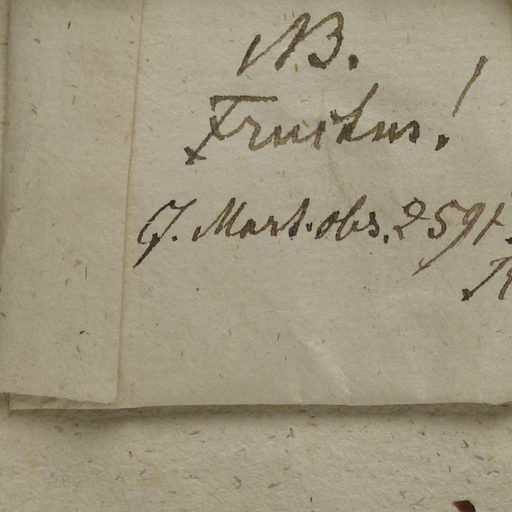 NB.
Fructus!
J. Mart. obs. 2591